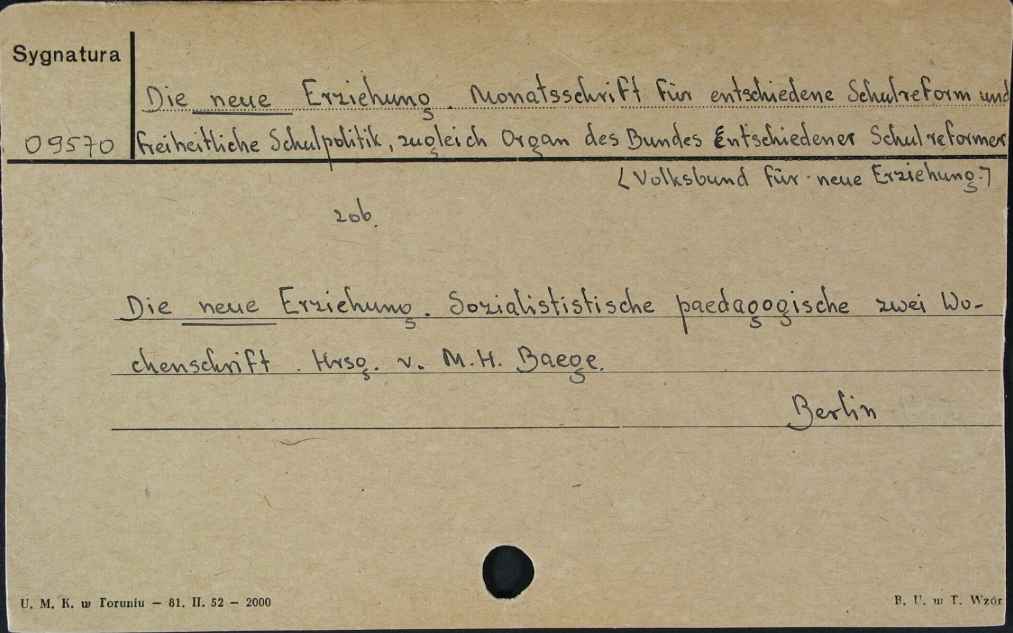 Sygnatura
Die neue Erziehung. Monatsschrift für entschiedene Schulreform und
09570 freiheitliche Schulpolitik, zugleich Organ des Bundes Entschiedener Schulreformer
[Volksbund für neue Erziehung.]
zob.
Die neue Erziehung. Sozialististische paedagogische zwei Wo-
chenschrift. Hrsg. v. M. H. Baege.
Berlin
U. M. K. w Toruniu – 81. II. 52 – 2000
B. U. w T. Wzór